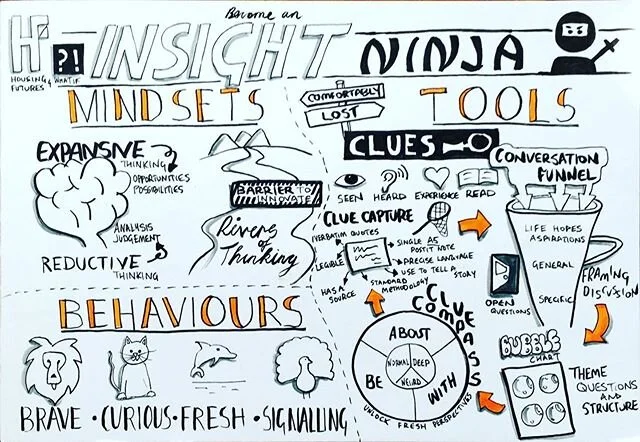 Become an
HF
?!
INSIGHT NINJA
HOUSING
FUTURES
& WHAT IF
MINDSETS
EXPANSIVE
THINKING
OPPORTUNITIES
POSSIBILITIES
ANALYSIS
JUDGEMENT
REDUCTIVE
THINKING
BARRIER TO
INNOVATE
Rivers
of
Thinking
BEHAVIOURS
BRAVE • CURIOUS • FRESH • SIGNALLING
COMFORTABLY
LOST
TOOLS
CLUES
SEEN
HEARD
EXPERIENCE
READ
CLUE CAPTURE
VERBATIM QUOTES
LEGIBLE
HAS A
SOURCE
SINGLE AS
POSTIT NOTE
PRECISE LANGUAGE
USE TO TELL A
STORY
STANDARD
METHODOLOGY
CONVERSATION
FUNNEL
LIFE HOPES
ASPIRATIONS
GENERAL
SPECIFIC
OPEN
QUESTIONS
FRAMING
DISCUSSION
CLUE
COMPASS
ABOUT
BE
WITH
NORMAL
DEEP
WEIRD
UNLOCK FRESH PERSPECTIVES
BUBBLE
CHART
THEME
QUESTIONS
AND
STRUCTURE